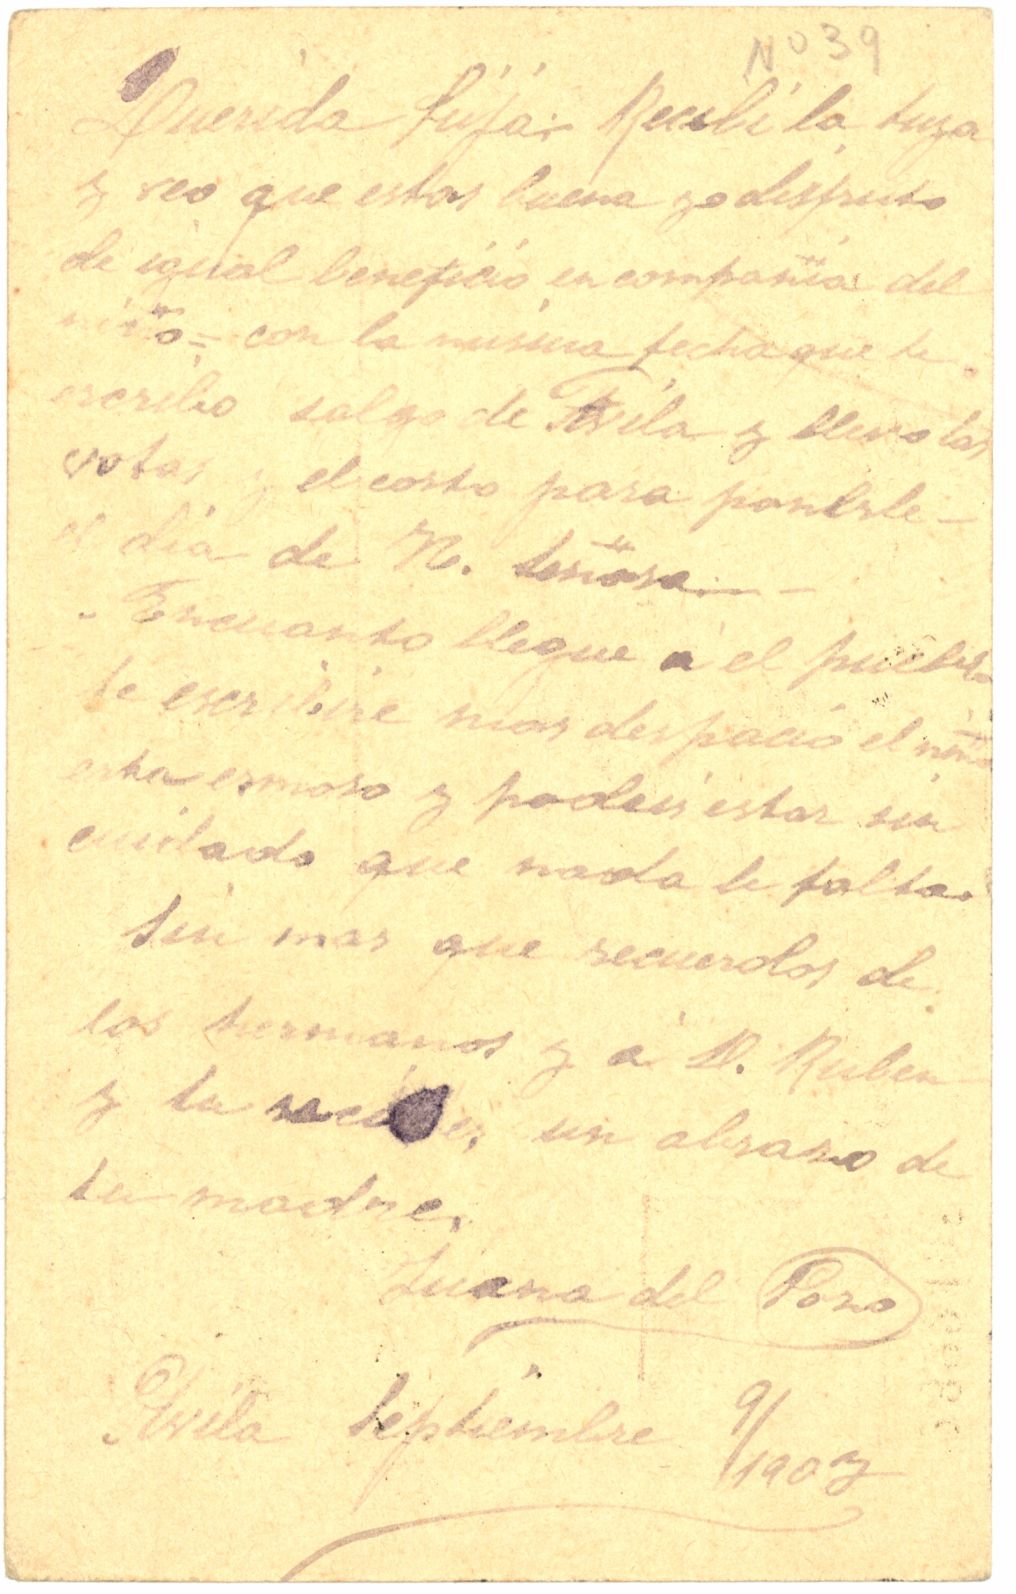 Nº 39
Querida hija: Recibi la tuya
y veo que estas buena yo disfruto
de igual beneficio en compañia del
niño = con la misma fecha que te
escribo salgo de Avila y llevo las
votas y el corto para ponerle -
el dia de N. Señora. -
Encuanto llegue á el pueblo
te escribire mas despacio el niño
esta ermoso y podeis estar sin
cuidado que nada le falta.
Sin mas que recuerdos de
los hermanos y á D. Ruben
y tu recibes un abrazo de
tu madre.
Juana del Pozo
Avila Septiembre 9/1907